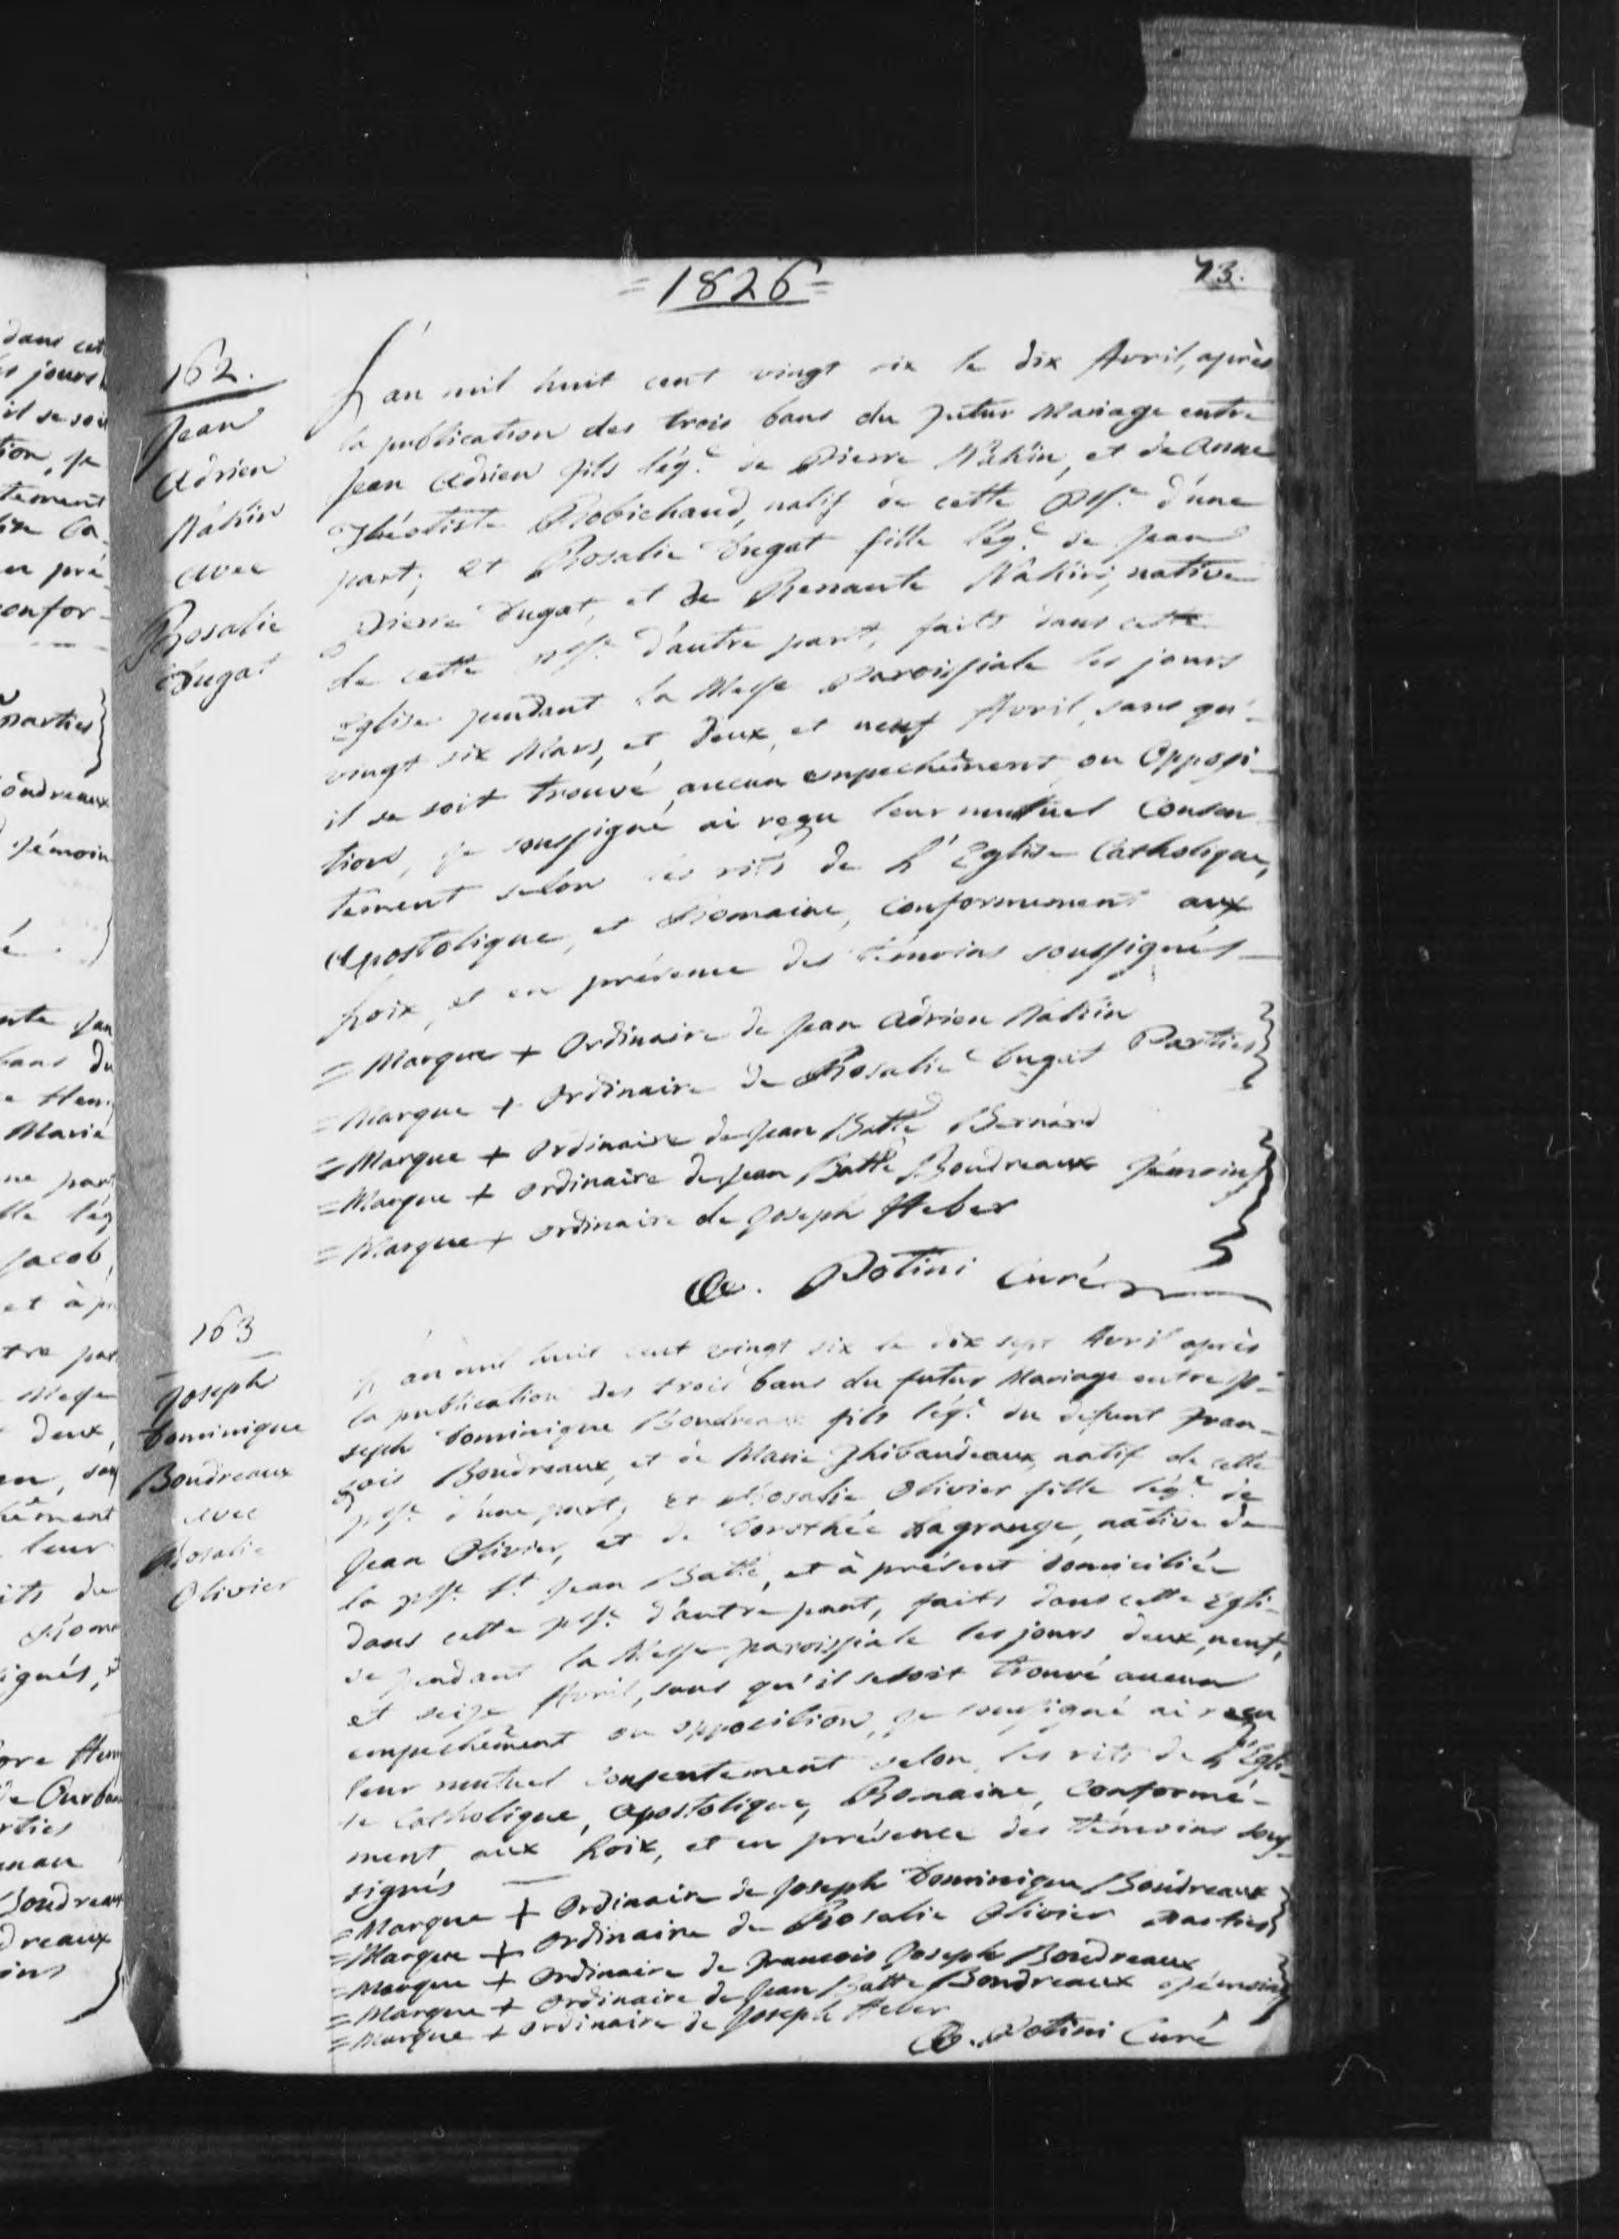 =1826=
73.
162.
Jean
Adrien
Nâkin
avec
Rosalie
Dugat
L'an mil huit cent vingt six le dix Avril, après
la publication des trois bans du futur Mariage entre
Jean Adrien fils lég.e de Pierre Nâkin, et de Anne
Théotiste Robichaud, natif de cette psse. d'une
part; et Rosalie Dugat fille lég.e de Jean
Pierre Dugat, et de Renante Nâkin, native
de cette psse. d'autre part, faits dans cette
Eglise pendant la Messe Paroissiale les jours
vingt six Mars, et deux, et neuf Avril, sans qu'-
il se soit trouvé aucun empechêment ou Opposi-
tion, je soussigné ai reçu leur mutuel Consen-
tement selon les rits de L'Eglise Catholique,
Apostolique, et Romaine, conformement aux
Loix, et en présence des témoins soussignés
= Marque + Ordinaire de Jean Adrien Nakin
= Marque + Ordinaire de Rosalie Dugat Parties
= Marque + Ordinaire de Jean Batte Bernard
= Marque + ordinaire de Jean Batte Boudreaux témoins
= Marque + ordinaire de Joseph Heber
A. Potini Curé
163
Joseph
Dominique
Boudreaux
avec
Rosalie
Olivier
L'an mil huit cent vingt six le dix sept Avril après
la publication des trois bans du futur Mariage entre Jo-
seph Dominique Boudreaux fils lég.e du defunt Fran-
çois Boudreaux, et de Marie Thibaudeaux, natif de cette
psse. d'une part, et Rosalie Olivier fille lég.e de
Jean Olivier, et de Dorothée Lagrange, native de
la psse. St. Jean Batte, et à présent domiciliée
dans cette psse. d'autre part, faits dans cette Egli-
se pendant la Messe paroissiale les jours deux, neuf,
et seize Avril, sans qu'il se soit trouvé aucun
empechêment ou opposition, je soussigné ai reçu
leur mutuel Consentement selon les rits de L'Egli-
se Catholique, Apostolique, Romaine, Conformé-
ment aux Loix, et en présence des témoins sous-
signés
= Marque + Ordinaire de Joseph Dominique Boudreaux
= Marque + Ordinaire de Rosalie Olivier Parties
= Marque + Ordinaire de Francois Joseph Boudreaux
= Marque + Ordinaire de Jean Batte Boudreaux témoins
= Marque + ordinaire de Joseph Heber
A. Potini Curé